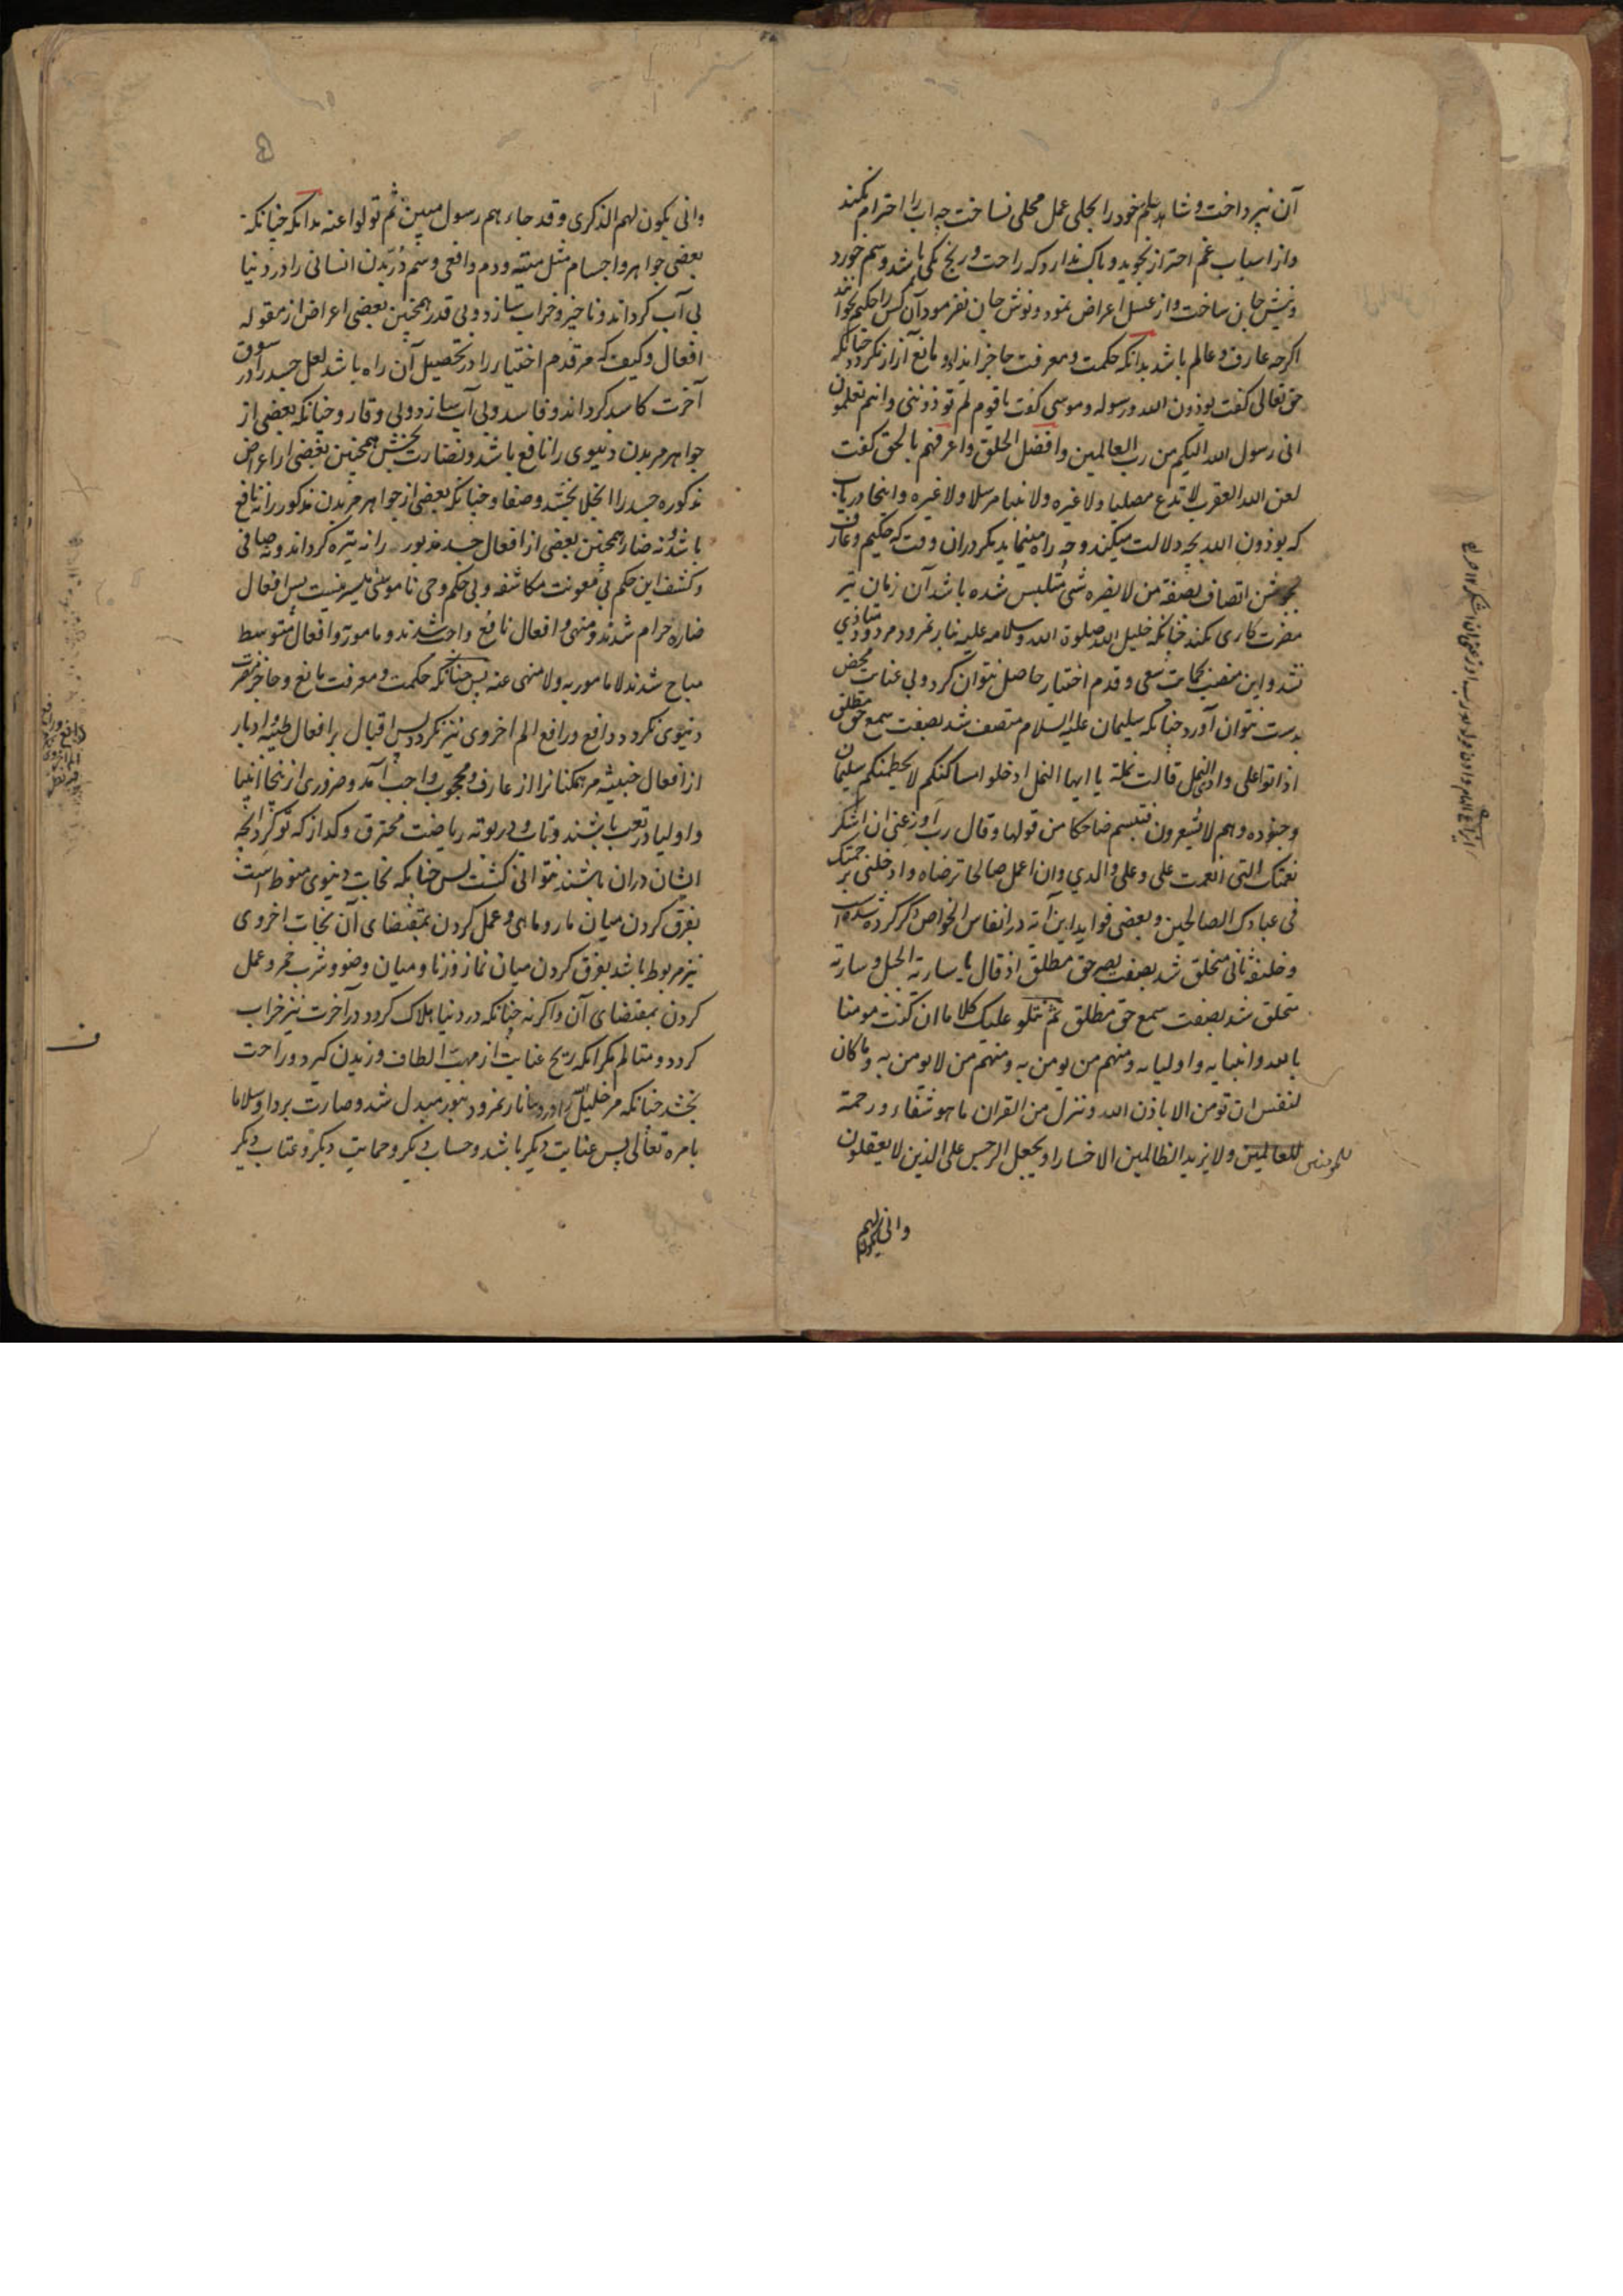 آن نپرداخت و شاهد علم خود را بحلی عمل محلی نساخت چه اسباب را احترام نکند
و از اسباب غم احتراز نجوید و باک ندارد که راحت و رنج یکی باشد و سم خورد
و نیش جان ساخت و از عسل اعراض نمود و نوش جان نفرمود آن کس را حکیم نخوانند
اگرچه عارف و عالم باشد بدانکه حکمت و معرفت حاجز ایذا و مانع آزار نکردد چنانکه
حق تعالی کفت یوذون الله و رسوله و موسی کفت یا قوم لم توذوننی و انتم تعلمون
انی رسول الله الیکم من رب العالمین و افضل الخلق و اعرفهم بالحق کفت
لعن الله العقرب لا تدع مصلیا و لا غیره و لا نبیا مرسلا و لا غیره و اینجا دریاب
که یوذون الله بچه دلالت میکند و چه راه مینماید مکر دران وقت که حکیم و عارف
اتصاف بصفة من لا یضره شی متلبس شده باشد آن زمان نیز
مضرت کاری نکند چنانکه خلیل الله صلوة الله و سلامه علیه بنار نمرود مردود متاذی
نشد و این منصب بحمایت سعی و قدم اختیار حاصل نتوان کرد و بی عنایت محض
بدست نتوان آورد چنانکه سلیمان علیه السلام متصف شد بصفت سمع حق مطلق
اذا اتوا علی واد النمل قالت نملة یا ایها النمل ادخلوا مساکنکم لا یحطمنکم سلیمان
و جنوده و هم لا یشعرون فتبسم ضاحکا من قولها و قال رب اوزعنی ان اشکر
نعمتک التی انعمت علی و علی والدی و ان اعمل صالحا ترضاه و ادخلنی برحمتک
فی عبادک الصالحین و بعضی فواید این آیه در انفاس الخواص ذکر کرده شده است
و خلیفه ثانی متخلق شد بصفت بصر حق مطلق اذ قال یا ساریة الجبل و ساریة
متخلق شد بصفت سمع حق مطلق ثم نتلو علیک کلاما ان کنت مومنا
بالله و انبیایه و اولیایه و منهم من یومن به و منهم من لا یومن به و ما کان
لنفس ان تومن الا باذن الله و ننزل من القران ما هو شفاء و رحمة
للمومنین للعالمین و لا یزید الظالمین الا خسارا و یجعل الرجس علی الذین لا یعقلون
وانی یکون لهم
وانی یکون لهم الذکری و قد جاءهم رسول مبین ثم تولوا عنه بدانکه چنانکه
بعضی جواهر و اجسام مثل میته و دم و افعی و سم در بدن انسانی را در دنیا
بی آب کرداند و ناچیز و خراب سازد و بی قدر همچنین بعضی اعراض از مقوله
افعال و کیف که مر قدم اختیار را در تحصیل آن راه باشد لعل جسد را در سوق
آخرت کاسد کرداند و فاسد و بی آب سازد و بی وقار و چنانکه بعضی از
جواهر مر بدن دنیوی را نافع باشد و نضارت بخش همچنین بعضی از اعراض
مذکوره جسد را انجلا بخشد و صفا و چنانکه بعضی از جواهر مر بدن مذکور را نه نافع
باشد و نه ضار همچنین بعضی از افعال جسد مزبور را نه تیره کرداند و نه صافی
و کشف این حکم بی معونت مکاشفه و بی حکم وحی ناموسی میسر نیست پس افعال
ضاره حرام شدند و منهی و افعال نافع واجب شدند و مامور و افعال متوسط
مباح شدند لا مامور به و لا منهی عنه پس چنانکه حکمت و معرفت مانع و حاجز مضرت
دنیوی نکردد دافع و رافع الم اخروی نیز نکردد پس اقبال بر افعال طیبه و ادبار
از افعال خبیثه مر ممکنانرا از عارف و محجوب واجب آمد و ضروری از اینجا انبیا
و اولیا در تعب باشند و تاب و در بوته ریاضت محترق و کداز که تو کرد آنچه
ایشان دران باشند نتوانی کشت پس چنانکه نجات دنیوی منوط است
بفرق کردن میان مار و ماهی و عمل کردن بمقتضای آن نجات اخروی
نیز مربوط باشد بفرق کردن میان نماز و زنا و میان وضو و شرب خمر و عمل
کردن بمقتضای آن و اکر نه چنانکه در دنیا هلاک کردد در آخرت نیز خراب
کردد و متالم مکر انکه ریح عنایت از مهب الطاف وزیدن کیرد و راحت
بخشد چنانکه مر خلیل را نار نمرود بنور مبدل شد و صارت بردا و سلاما
بامره تعالی پس عنایت دیکر باشد و حساب دیکر و حمایت دیکر و عتاب دیکر